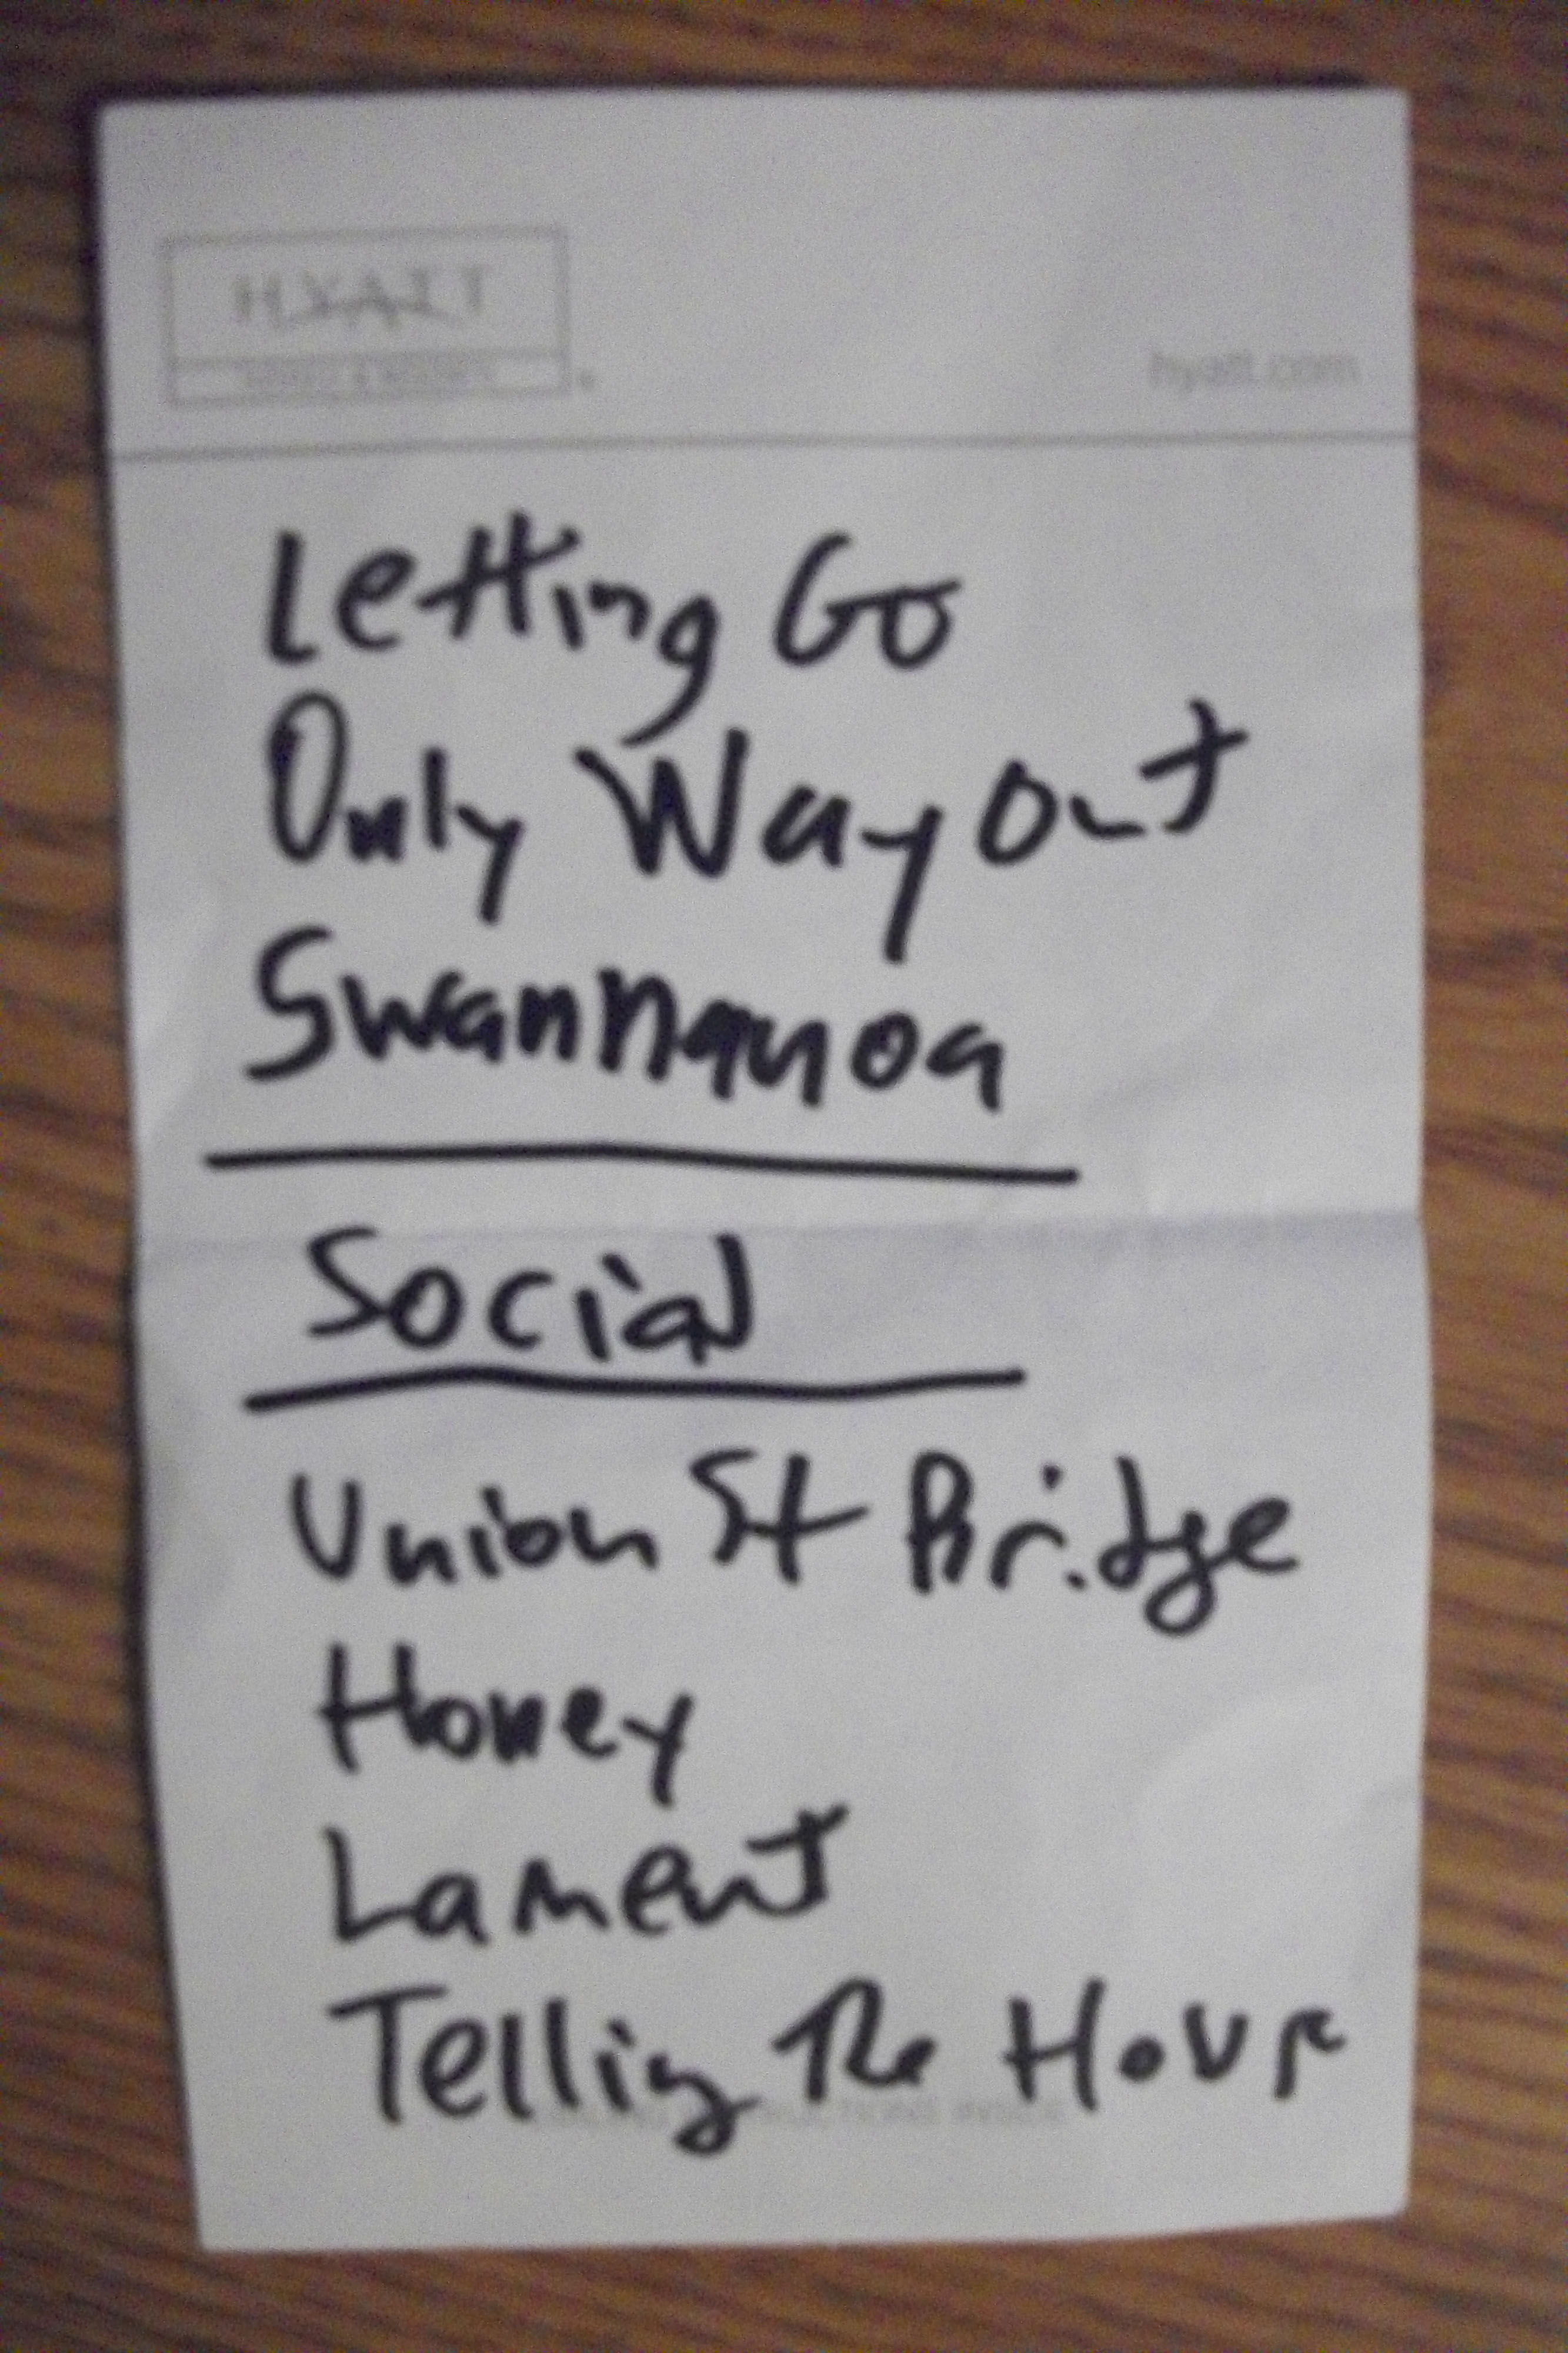 HYATT
HOTELS & RESORTS
hyatt.com
Letting Go
Only Way Out
Swannanoa
Social
Union St Bridge
Honey
Lament
Telling The Hour